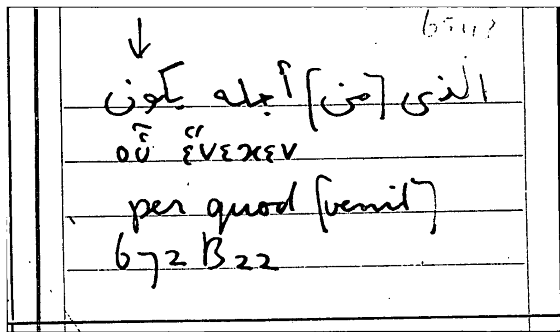 ↓
الذى [من] أجله يكون
οὗ ἕνεκεν
per quod [venit]
672 B22